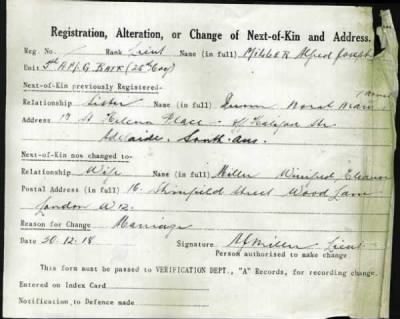 Registration, Alteration, or Change of Next-of-Kin and Address.
Reg. No. Rank Lieut Name (in full) Miller Alfred Joseph
Unit 5th
Next-of-Kin previously Registered-
Relationship Sister Name (in full) Norah
Address 17 St Helena Place - off Halifax St
Adelaide, South Aus.
Next-of-Kin now changed to-
Relationship Wife Name (in full) Miller Winifred Eleanor
Postal Address (in full) 16 Street Wood Lane
London W 12.
Reason for Change Marriage
Date 20.12.18 Signature AJ Miller Lieut
Person authorised to make change
This form must be passed to VERIFICATION DEPT., "A" Records, for recording change.
Entered on Index Card
Notification to Defence made.